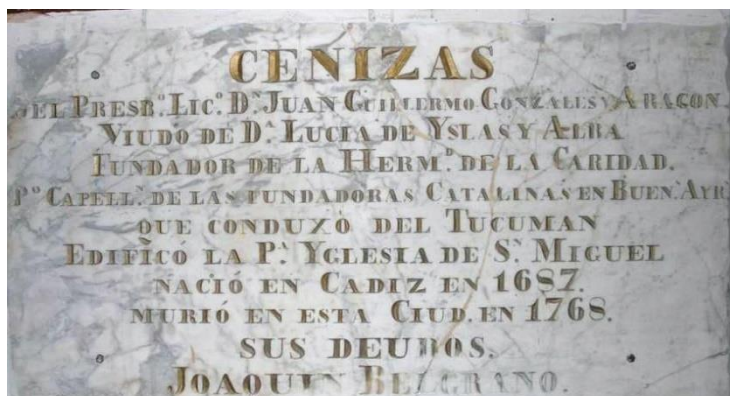 CENIZAS
DEL PRESBº. LICº. Dⁿ. JUAN GUILLERMO GONZALES Y ARAGON
VIUDO DE Dª. LUCIA DE YSLAS Y ALBA
FUNDADOR DE LA HERMᴰ. DE LA CARIDAD.
Pº CAPELLⁿ. DE LAS FUNDADORAS CATALINAS EN BUENˢ. AYRˢ
QUE CONDUXO DEL TUCUMAN
EDIFICÓ LA Pª. YGLESIA DE Sⁿ. MIGUEL
NACIÓ EN CADIZ EN 1687.
MURIÓ EN ESTA CIUD. EN 1768.
SUS DEUDOS.
JOAQUIN BELGRANO.